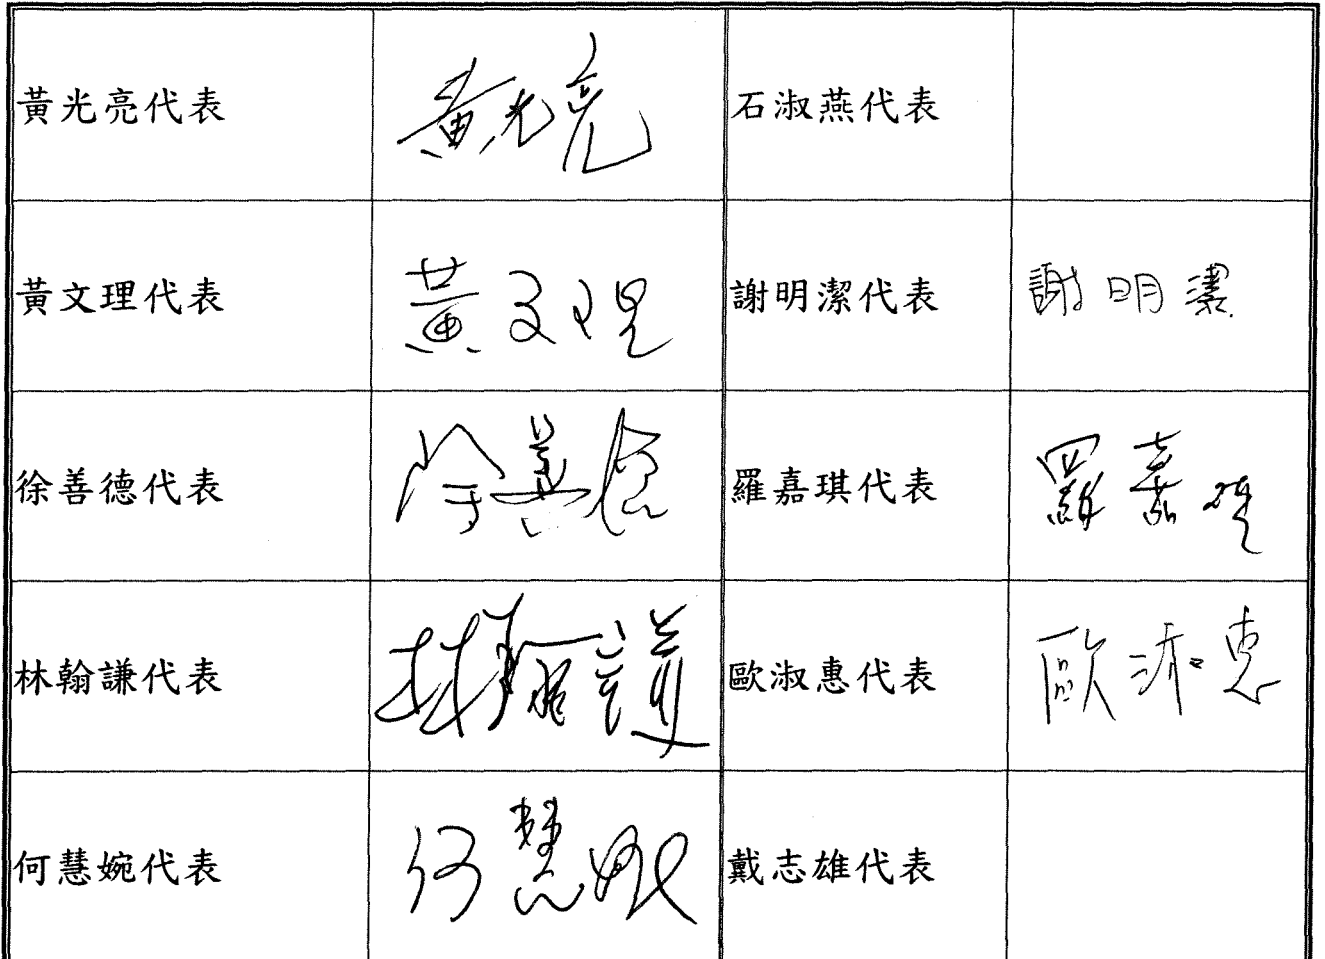 黃光亮代表 黃光亮 石淑燕代表
黃文理代表 黃文理 謝明潔代表 謝明潔
徐善德代表 徐善德 羅嘉琪代表 羅嘉琪
林翰謙代表 林翰謙 歐淑惠代表 歐淑惠
何慧婉代表 何慧婉 戴志雄代表